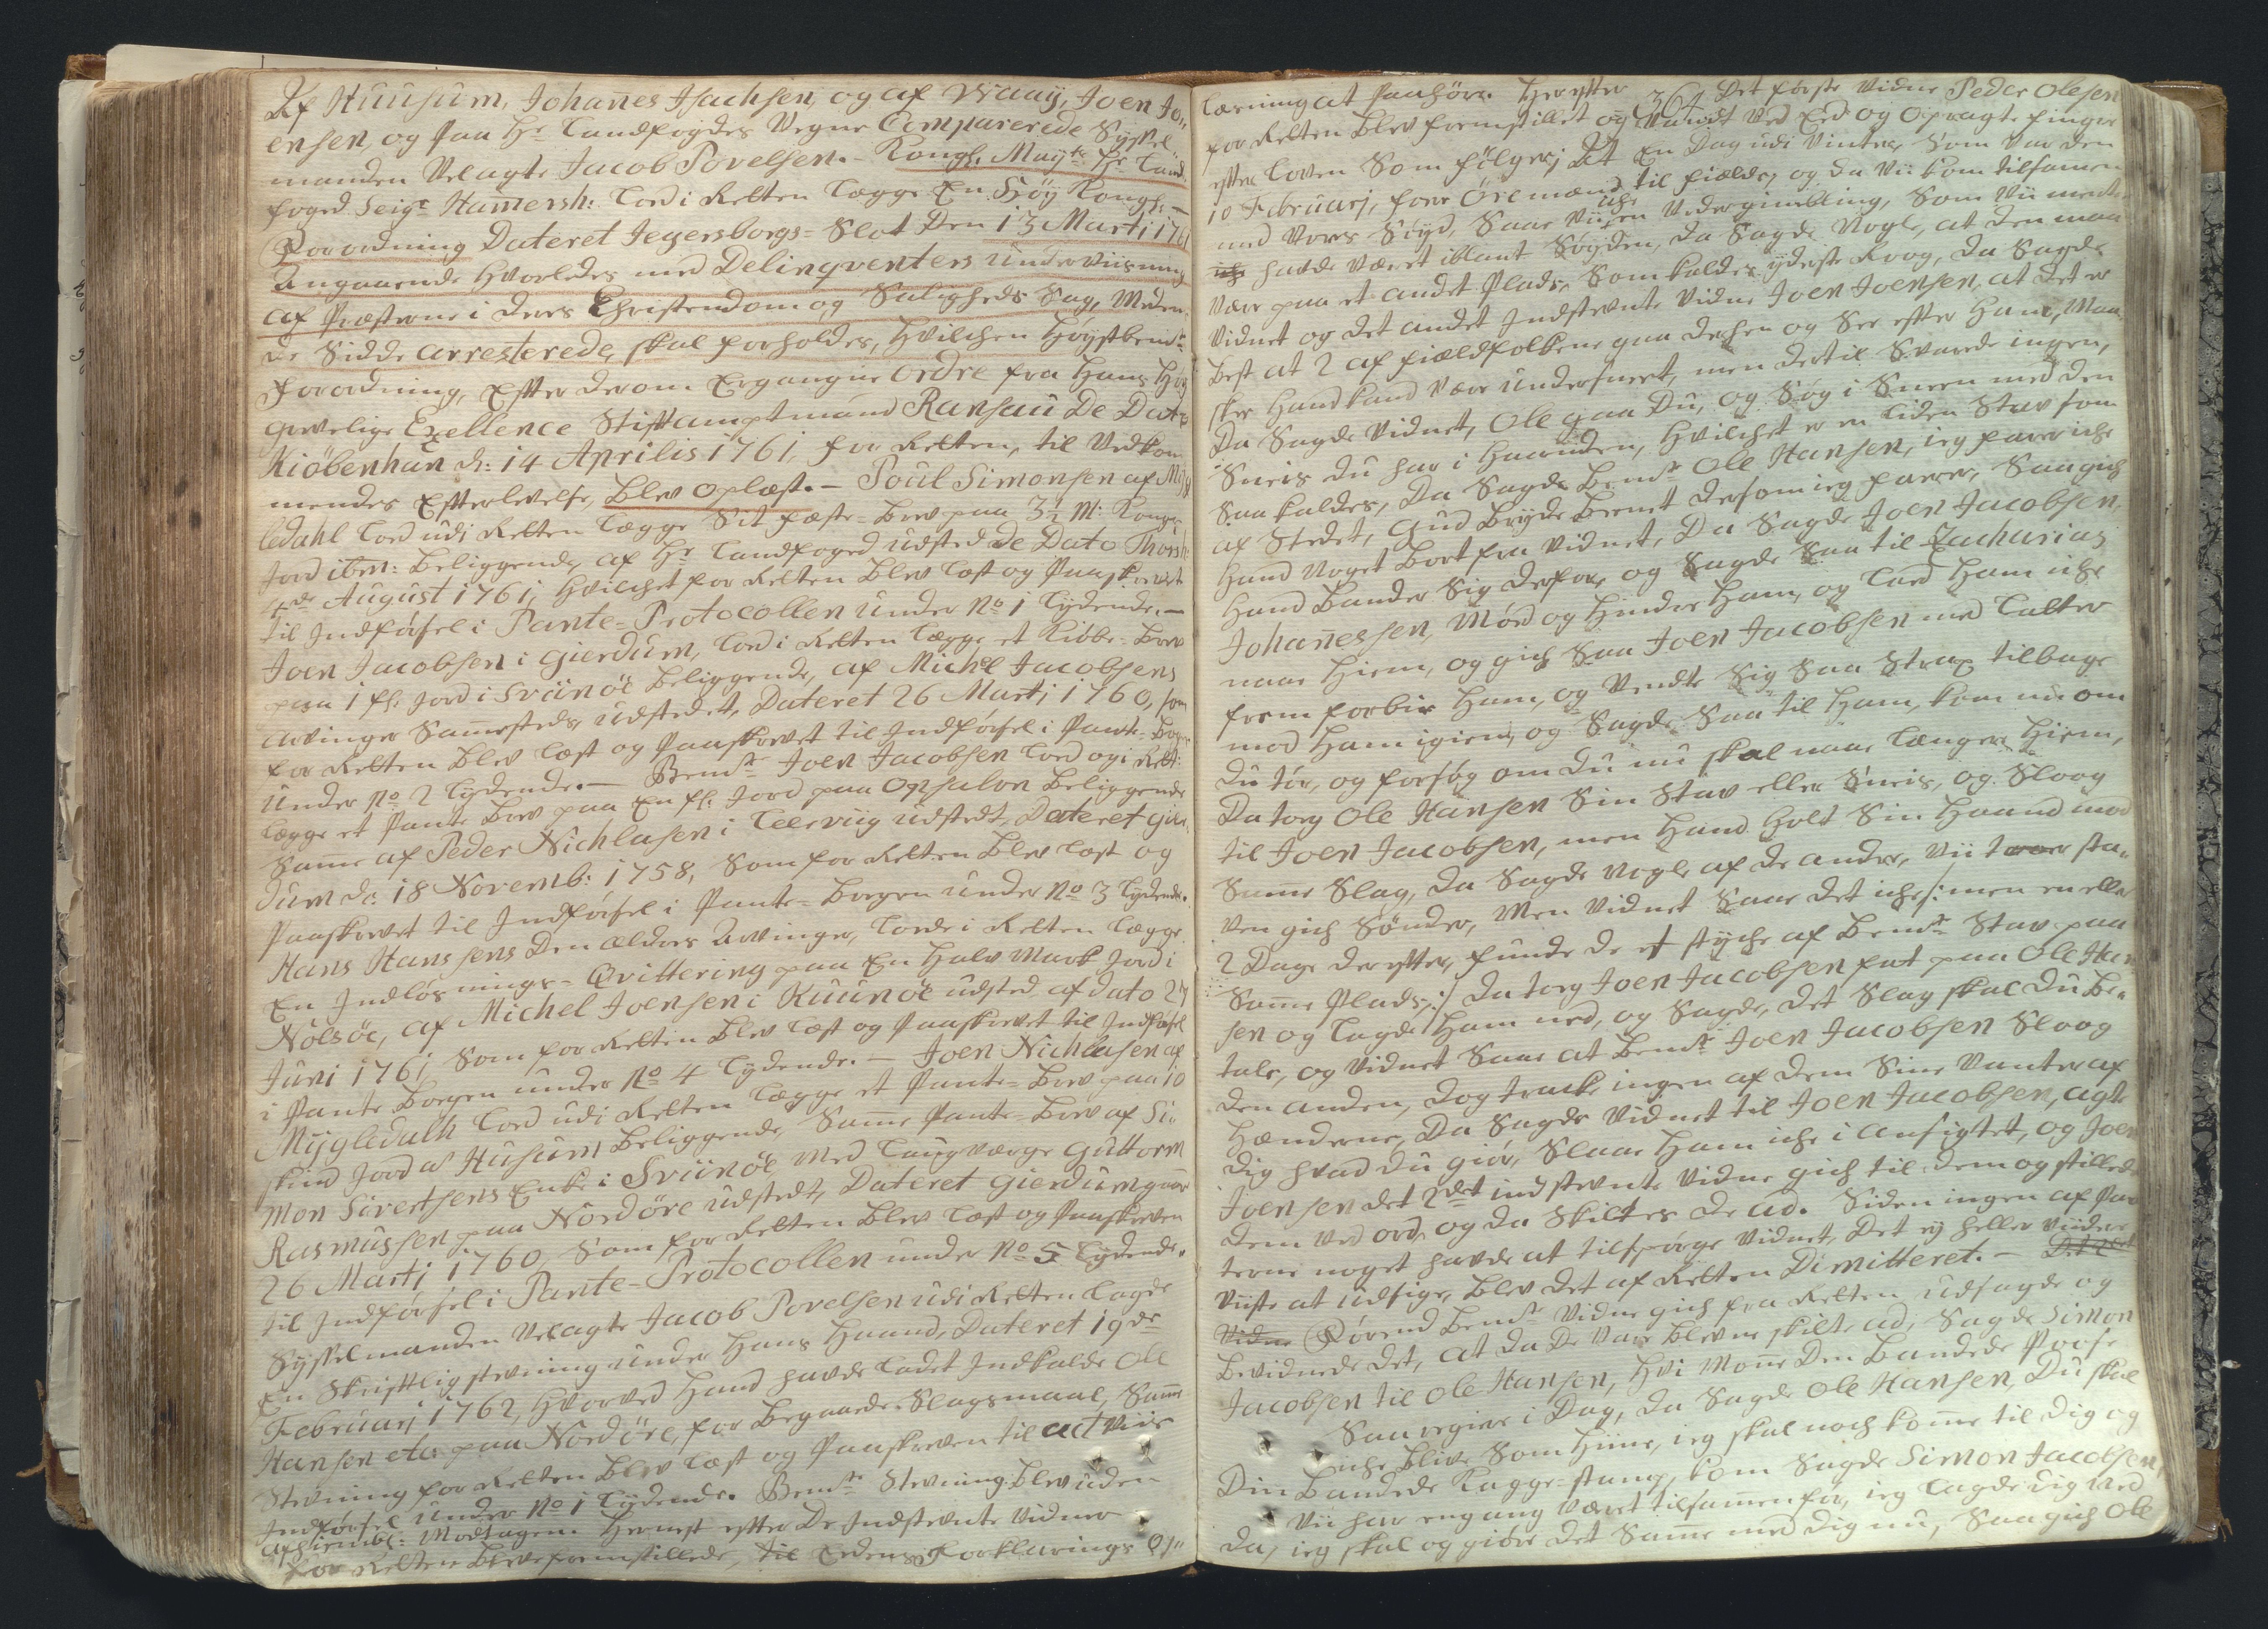 Af Huusum, Johannes Isachsen, og af Viaaij, Joen Jo„
ensen, og Paa Hr Landfogdes Vegne Comparerede Syssel„
manden Velagte Jacob Povelsen. – Kongl. Mayts Hr Land„
foged Seigr Hamersh: Lod i Retten Legge En Høy Kongl:
Forordning Dateret Jegersborgs-Slot Den 13 Marti 1761
Angaaende Hvorledes med Delinqventers Underviisning
af Præsterne i Deris Christendom og Saligheds Sag, Meden
De Sidde arresterede, skal forholdes, Hvilchen Høystbemte
Forordning, Efter Derom Ergangne Ordre fra Hans Høy
grevelige Exellence Stiftamptmand Ransau De Dato
Kiöbenhafn d: 14 Aprilis 1761, for Retten, til Vedkom
mendes Efterlevelse, Blev Oplæst. – Poul Simonsen af Myg
ledahl Lod udi Retten Legge Sit Fæste-Brev paa 3½ M: Konge
Jord ibm: Beliggende, af Hr Landfoged udsted De Dato Thorsh:
4de August 1761, Hvilchet for Retten Blev Læst og Paaskrevet
til Indførsel i Pante-Protocollen under No 1 Lydende. –
Joen Jacobsen i Gierdum, Lod i Retten Legge et Kiøbe-Brev
paa 1 fl: Jord i Sviinöe Beliggende, af Michel Jacobsens
Arvinger Sammesteds, udstedet, Dateret 26 Martj 1760, som
for Retten Blev Læst og Paaskrevet til Indførsel i Pante-Bogen
under No 2 Lydende. – Bemte Joen Jacobsen Lod og i Rett:
Legge et Pante Brev paa En fl: Jord paa Opsalon Beliggende
Samme af Peder Nichlasen i Leerviig udstedt, Dateret Gier
dum d: 18 Novemb: 1758, Som for Retten Blev Læst og
Paaskrevet til Indførsel i Pante-Bogen under No 3 Lydende.
Hans Hanssens Den ældres Arvinger, Lode i Retten Legge
En Indløsnings-Qvittering paa En Halv Mark Jord i
Nolsöe, af Michel Joensen i Kuunöe udsted af Dato 24
Juni 1761, Som for Retten Blev Læst og Paaskrevet til Indførsel
i Pante Bogen under No 4 Lydende. – Joen Nichlasen af
Mygledalh Lod udi Retten Legge et Pante-Brev paa 10
skind Jord a Husum Beliggende, Samme Pante-Brev af Si„
mon Sivertsens Enke i Sviinöe, Med Laugværge Guttorm
Rasmussen paa Nordöre udstedt, Dateret Gierdum gaar
26 Martj 1760, Som for Retten Blev Læst og Paaskreven
til Indførsel i Pante-Protocollen under No 5 Lydende.
Sysselmanden Velagte Jacob Povelsen udi Retten Lagde
En Skriftlig stevning under Hans Haand, Dateret 19de
Februarj 1762, Hvorved Hand havde Ladet Indkalde Ole
Hansen etc: paa Nordöre, for Begaaede Slagsmaal, Samme
Stevning for Retten Blev Læst og Paaskreven til Act Viis
Indførsel under No 1 Lydende. Bemte Stevning Blev uden
Modsagen. Hernest efter De Indstevnte Vidner
for Retten Bleve fremstillede, til Edens Forklarings Op„
Læsning at Paahøre. Herefter 364 Det første Vidne Peder Olesen
for Retten Blev fremstillet og Vandt Ved Eed og Opragte finger
efter Loven Som følger; At En Dag udi Vinter, Som Var Den
10 Februarj, foer Öre mænd til fields, og da Vii kom tilsamen
med Vores Søyd, Saae Vii iche en Vedergimbling, Som Vii mente
iche havde Været iblant Søyden, da Sagde Nogle, at Den maa
Være paa et andet Plads, Som kaldes yderste Roog, Da Sagde
Vidnet og Det andet Indstevnte Vidne Joen Joensen, at det er
Best at 2 af fieldfolkene gaa derhen og See efter Ham, Maa
skee Hand kand Være undersneet, men dertil Svarede ingen,
Da Sagde Vidnet, Ole gaa Du, og Søg i Sneen med Den
Sneis Du har i Haanden, Hvilchet er en Liden Stav som
Saa kaldes, Da Sagde Bemte Ole Hansen, ieg farer iche
af Stedet, Gud Bryde Beenet Dersom ieg farer, Saa gich
Hand Noget Bort fra Vidnet, Da Sagde Joen Jacobsen,
Hand Bander Sig Derfor, og Sagde Saa til Zacharias
Johannessen, Mød og Hinder Ham, og Lad Ham iche
naae Hiem, og gich Saa Joen Jacobsen med Latter
frem forbie Ham, og Vendte Sig Saa Strax tilbage
mod Ham igien, og Sagde Saa til Ham, kom nu om
Du tør, og forsøg om Du nu skal naae Længere Hiem,
Da tog Ole Hansen Sin Stav eller Sneis, og Sloog
til Joen Jacobsen, men Hand Holt Sin Haand mod
Samme Slag, Da Sagde Nogle af De andre, Vii troer sta„
ven gich Sønder, Men Vidnet Saae Det iche /: men en eller
2 Dage Derefter, funde De et styche af Bemte Stav paa
Samme Plads, :/ Da tog Joen Jacobsen fat paa Ole Han
sen og Lagde Ham ned, og Sagde, Det Slag skal Du Be„
tale, og Vidnet Saae at Bemte Joen Jacobsen Sloog
Den anden, Dog track ingen af Dem Sine Vanter af
Hænderne, Da Sagde Vidnet til Joen Jacobsen, Agte
Dig hvad Du giør, Slaae Ham iche i Ansigtet, og Joen
Joensen Det 2det indstevnte Vidne gich til dem og stillede
Dem Ved ord, og Da Skiltes De ad. Siden ingen af Par
terne noget havde at tilspørge Vidnet, Det ey heller Viidere
Viiste at udsige, Blev Det af Retten Dimitteret. – Det 2det
Vidne Førend Bemte Vidne gich fra Retten udsagde og
Bevidnede Det, At Da De Vare Blevne skilte ad, Sagde Simon
Jacobsen til Ole Hansen, Hvi Monne Den Bandede
Saa regiere i Dag, Da Sagde Ole Hansen, Du skal
iche Blive Som Hiine, ieg skal noch komme til Dig og
Din Bandede Ragge-stang, kom Sagde Simon Jacobsen,
Vii har engang Været tilsammen før, ieg Lagde Dig Ned
Da, ieg skal og giøre Det Samme med Dig nu, Saa gich Ole